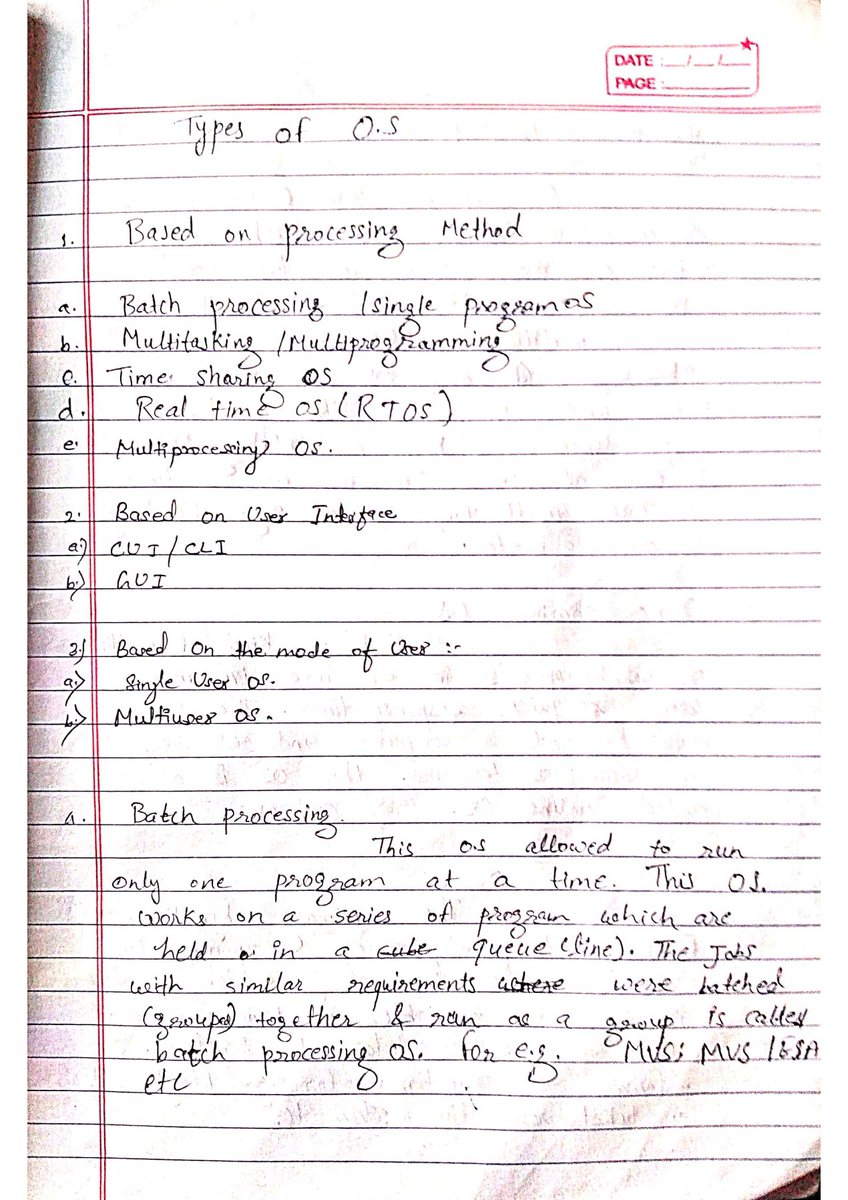 DATE : __/__/__
PAGE : ______
Types of O.S
1. Based on processing Method
a. Batch processing / single program OS
b. Multitasking / Multiprogramming
c. Time sharing OS
d. Real time OS (RTOS)
e. Multiprocessing OS.
2. Based on User Interface
a.) CUI / CLI
b.) GUI
3.) Based on the mode of User :-
a.) Single User OS.
b.) Multiuser OS.
a. Batch processing.
This O.S allowed to run
only one program at a time. This OS.
works on a series of program which are
held in a cube queue (line). The Jobs
with similar requirements where were batched
(grouped) together & run as a group is called
batch processing OS. For e.g. MVS; MVS / ESA
etc